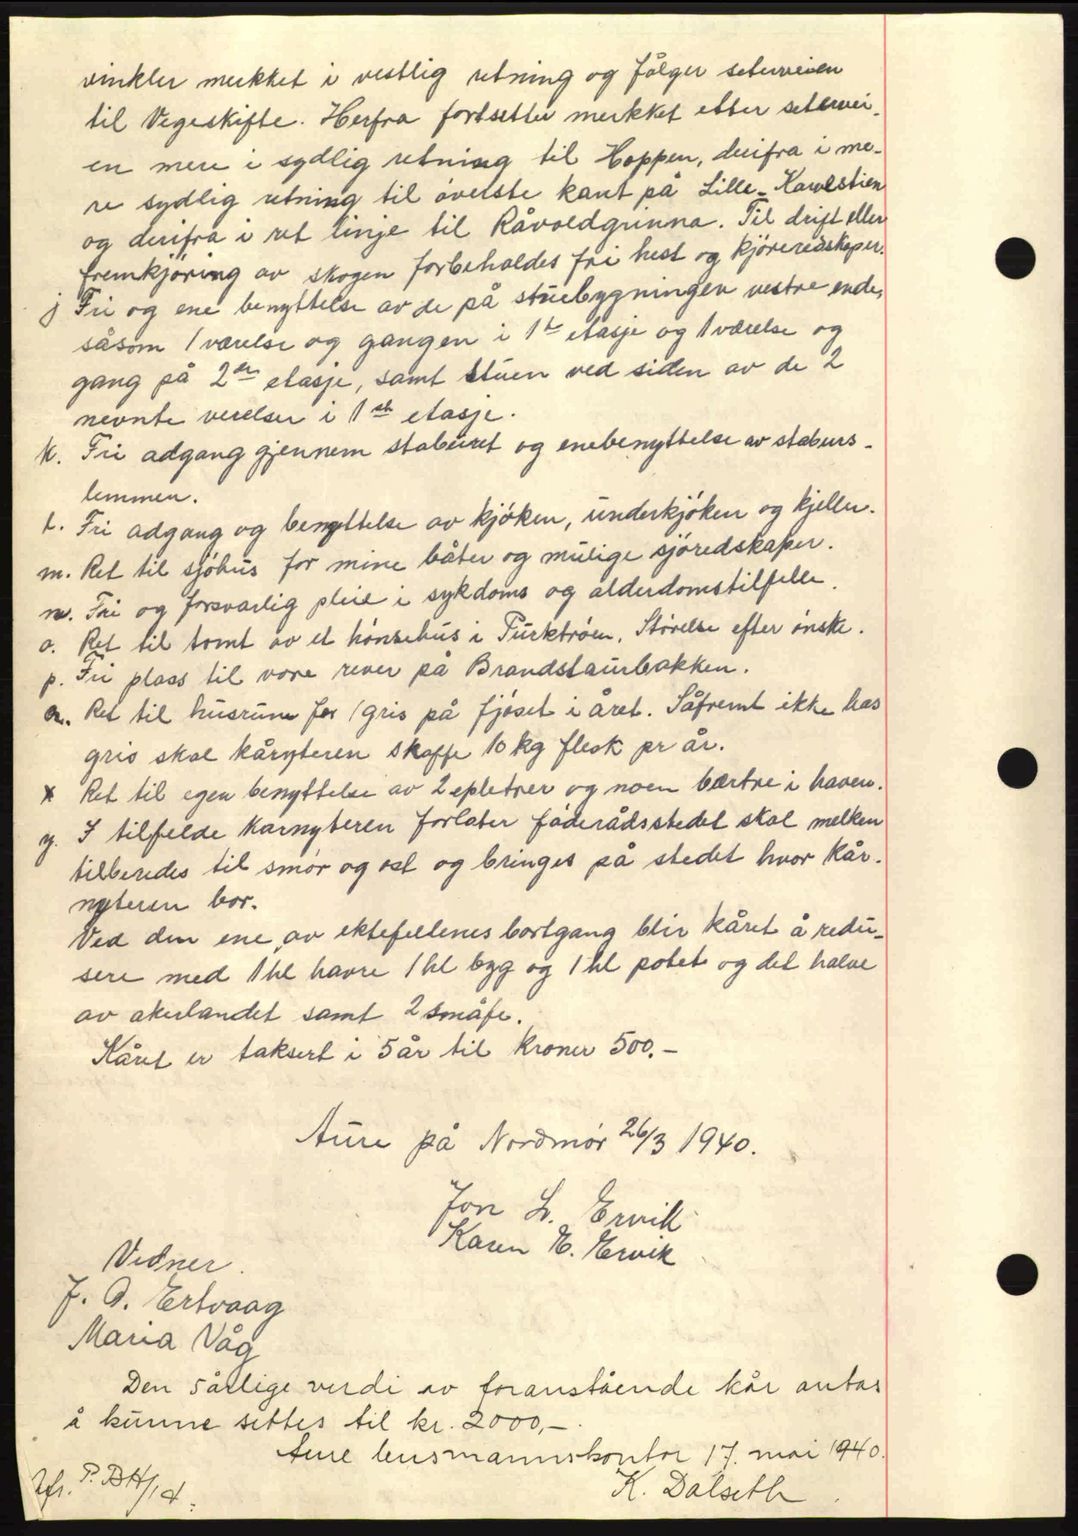 vinkler merket i vestlig retning og følger seterveien
til Vegeskifte. Herfra fortsetter merket etter setervei-
en mere i sydlig retning til Hoppen, derifra i me-
re sydlig retning til øverste kant på Lille-Karvlstien
og derifra i ret linje til Råvoldgrinna. Til drift eller
fremkjøring av skogen forbeholdes fri hest og kjøreredskaper.
j Fri og ene benyttelse av de på stuebygningen vestre ende,
såsom 1 værelse og gangen i 1ste etasje og 1 værelse og
gang på 2en etasje, samt stuen ved siden av de 2
nevnte verelser i 1ste etasje.
k. Fri adgang gjennem staburet og enebenyttelse av staburs-
lemmen.
l. Fri adgang og benyttelse av kjøken, underkjøken og kjeller.
m. Ret til sjøhus for mine båter og mulige sjøredskaper.
n. Fri og forsvarlig pleie i sykdoms og alderdomstilfelle.
o. Ret til tomt av et hønsehus i Turktrøen, Størelse efter ønske.
p. Fri plass til vore rever på Brandstaurbakken.
Ret til husrum for 1 gris på fjøset i året. Såfremt ikke has
gris skal kårnyteren skaffe 10 kg flesk pr år.
x Ret til egen benyttelse av 2 epletrer og noen bærtre i haven.
y. I tilfelde Kårnyteren forlater føderådsstedet skal melken
tilberedes til smør og ost og bringes på stedet hvor kår-
nyteren bor.
Ved den ene av ektefellenes bortgang blir kåret å redu-
sere med 1 hl havre 1 hl byg og 1 hl potet og det halve
av akerlandet samt 2 småfe.
Kåret er taksert i 5 år til kroner 500.-
Aure på Nordmør 26/3 1940.
Jon L. Ervik
Karen E. Ervik
Vidner.
J. O. Ertvaag
Maria Våg
Den 5 årlige verdi av foranstående kår antas
å kunne settes til kr. 2000,-
Aure lensmannskontor 17. mai 1940.
K. Dalseth